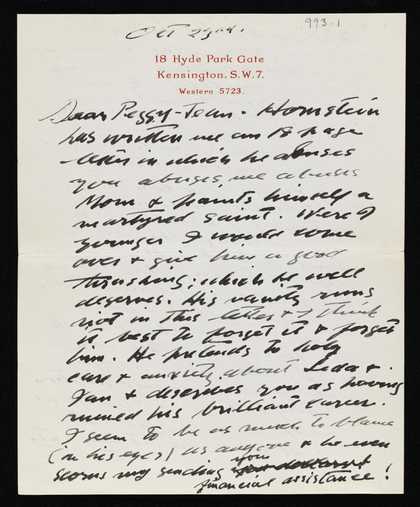 Oct 22nd.
993.1
18 Hyde Park Gate
Kensington, S.W.7.
Western 5723.
Dear Peggy-Jean - Hornstein
has written me an 18 page
letter in which he abuses
you abuses, me abuses
Mom & paints himself a
martyred saint. Were I
younger I would come
over & give him a good
thrashing; which he well
deserves. His vanity runs
riot in this letter & I think
it best to forget it & forget
him. He pretends to holy
care & anxiety about Leda &
Ian & describes you as having
ruined his brilliant career.
I seem to be as much to blame
(in his eyes) as anyone & he even
scorns my sending you
financial assistance!